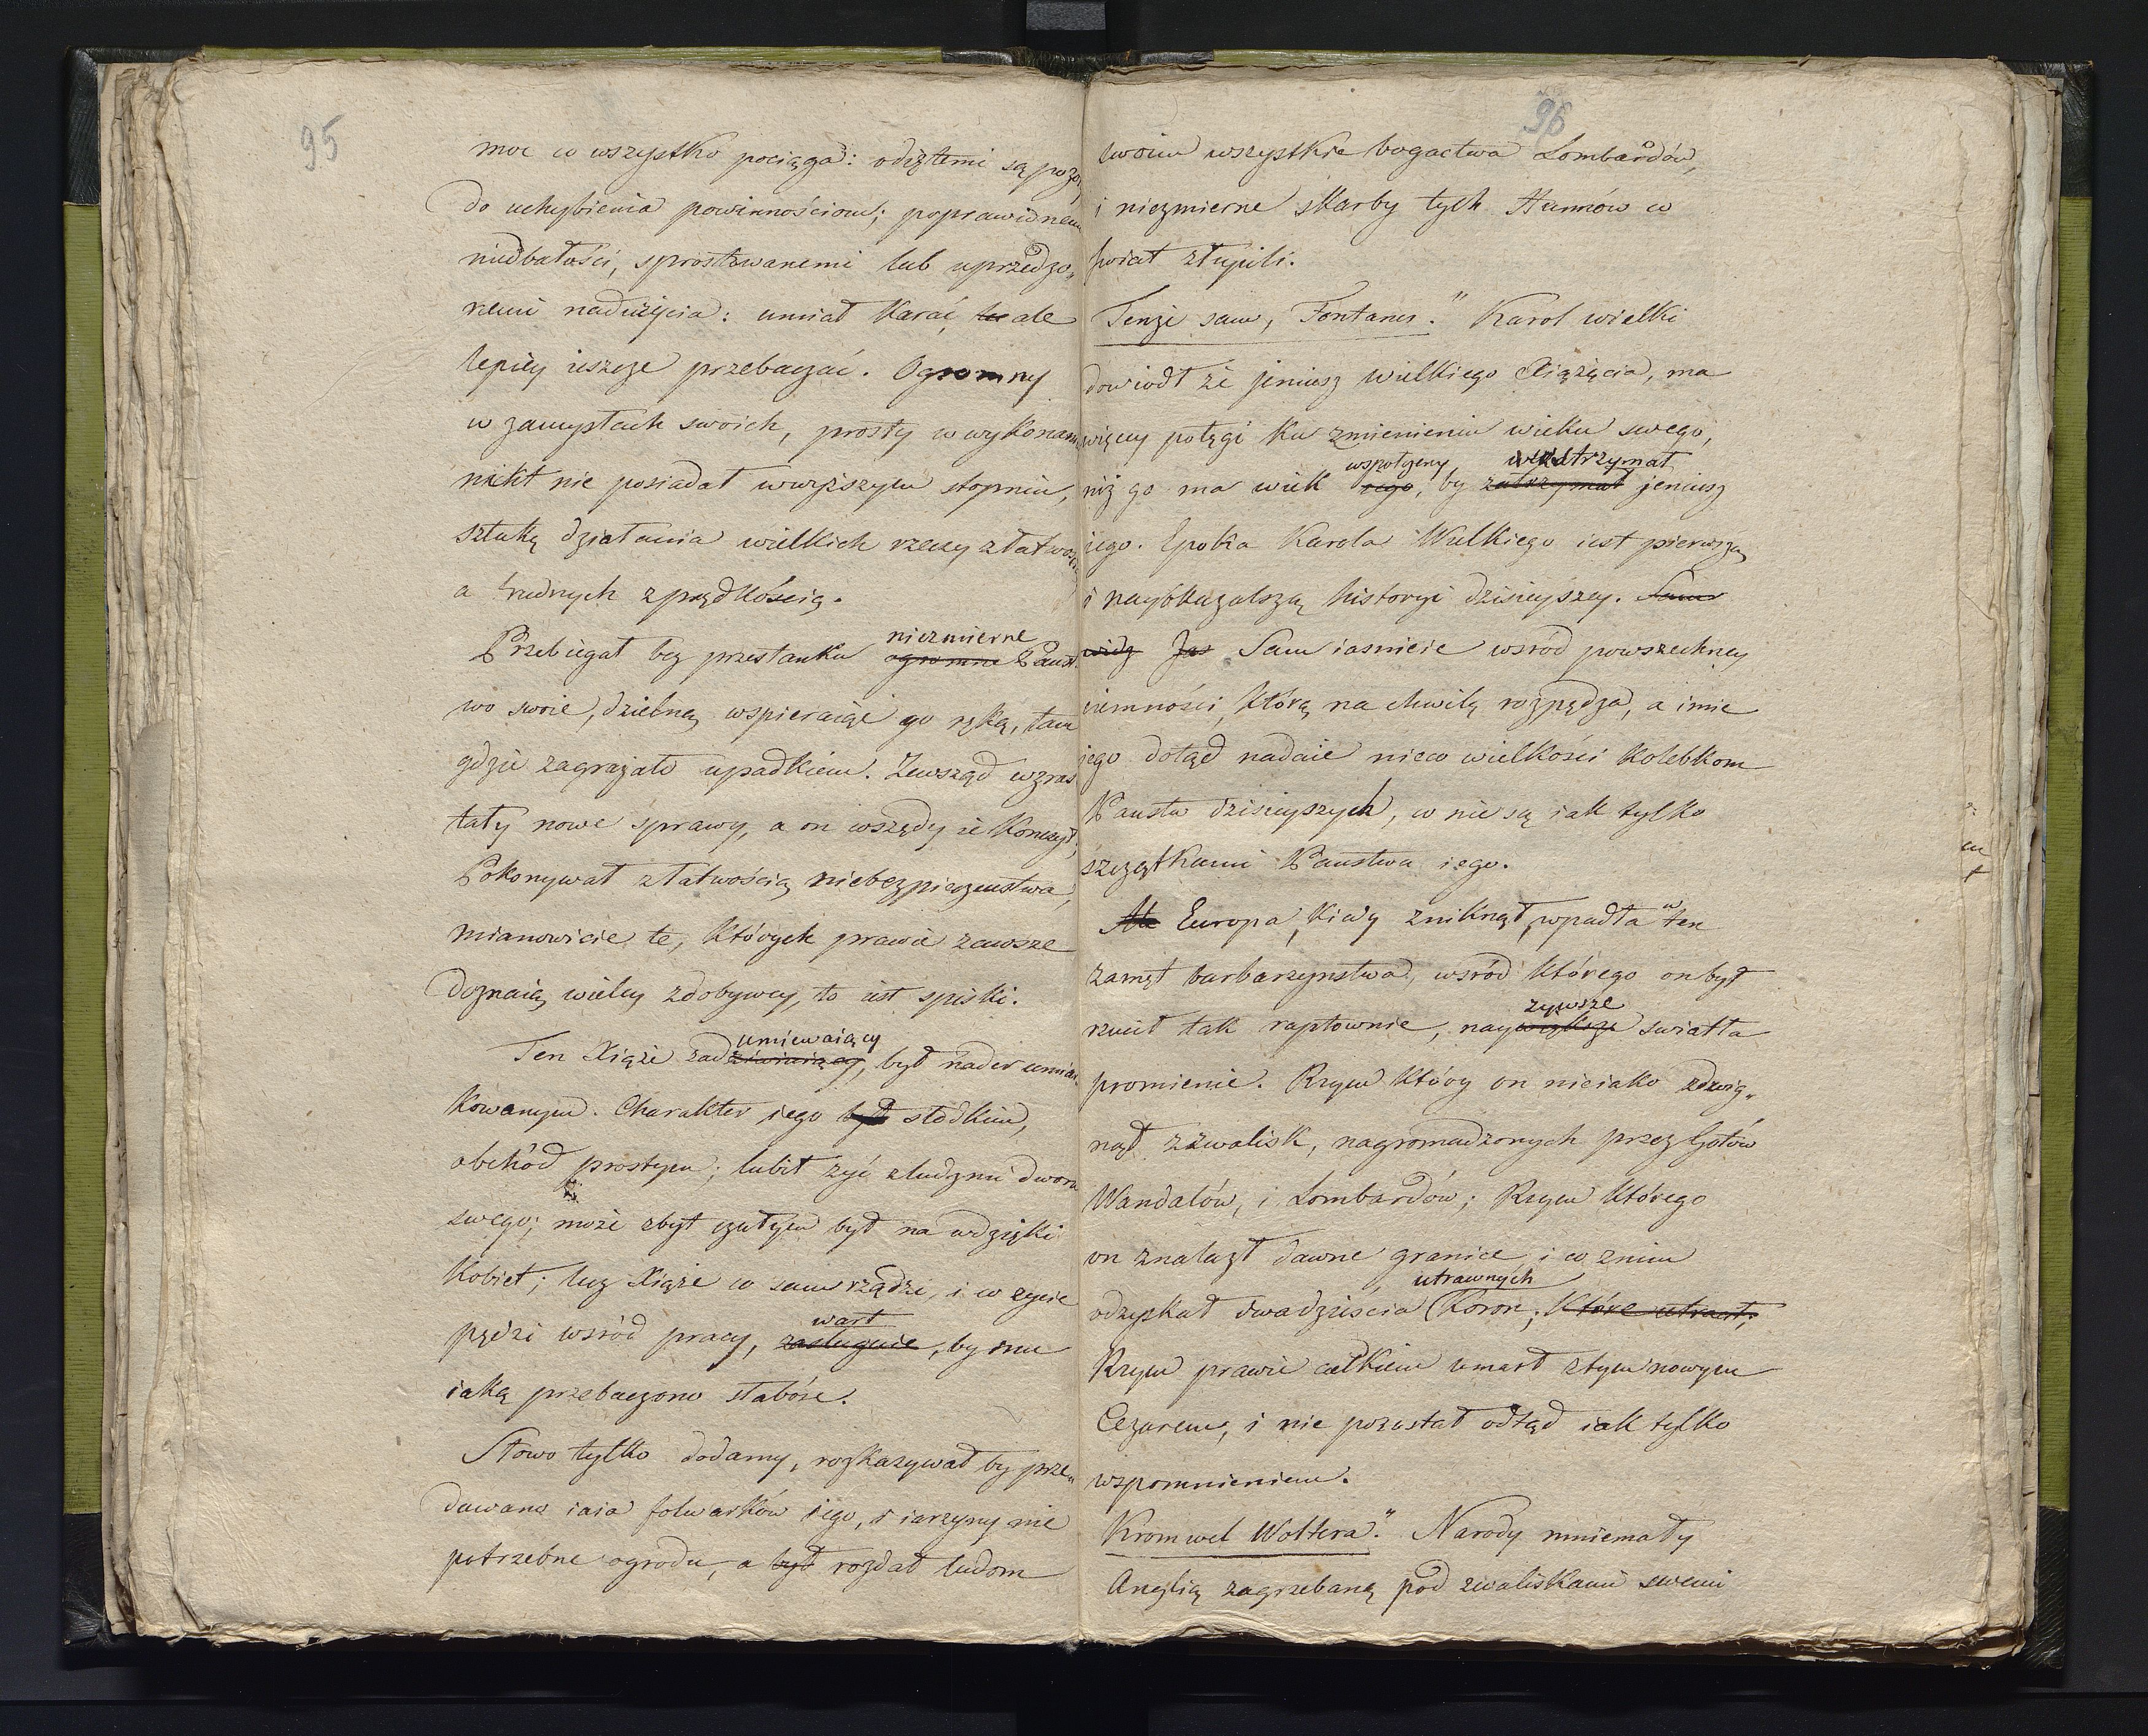 95
moc co wszystko pociąga: odiętemi są pozo,
do uchybienia powinnościom; poprawionemi
niedbałości, sprostowanemi lub uprzedzo„
nemi nadużycia: umiał karać, ale
lepiey ieszcze przebaczać. Ogromny
w zamysłach swoich, prosty w wykonaniu
nikt nie posiadał wwyższym stopniu,
sztukę działania wielkich rzeczy złatwością
a trudnych zprędkością.
niezmierne
Przebiegał bez przestanku ogromne Państ.
wo swoie, dzielną wspieraiąc go ręką, tam
gdzie zagrażało upadkiem. Zewsząd wzras
tały nowe sprawy, a on wszędy ie kończył,
Pokonywał złatwością niebezpieczeństwa,
mianowicie te, których prawie zawsze
doznaią wielcy zdobywcy, to iest spiski.
umiewaiący
Ten Xiąże zadziwiaiący, był nader umiar„
kowanym. Charakter iego był słodkim,
obchód prostym; lubił żyć zludzmi dworu
swego; może zbyt czułym był na wdzięki
kobiet; lecz Xiąże co sam rządzi, i co życie
wart
pędzi wsród pracy, zasługuie, by mu
iaką przebaczono słabóść.
Słowo tylko dodamy, rozkazywał by prze„
dawano iaia folwarków iego, i iarzyny nie
potrzebne ogrodu, a był rozdał ludom
96
swoim wszystkie bogactwa Lombardów,
i niezmierne skarby tych Hunnów co
świat złupili.
Tenże sam, Fontanes." Karol wielki
dowiódł że jeniusz wielkiego Xiążęcia, ma
więcey potęgi ku zmienieniu wieku swego,
wspołczeny, wstrzymał
niż go ma wiek iego, by zatrzymał jeniusz
iego. Epoka Karola Wielkiego iest pierwszą
i nayokazalszą historyi dzisieyszey. Sam
widz Jas Sam iasnieie wsród powszechney
ciemności, którą na chwilę rozpędza, a imie
iego dotąd nadaie nieco wielkości kolebkom
Państw dzisieyszych, co nie są iak tylko
szczątkami Państwa iego.
Ale Europa, kiedy zniknął, wpadła w ten
zamęt barbarzynstwa, wsród którego on był
żywsze
rzucił tak raptownie, naywiększe swiatła
promienie. Rzym który on nieiako zdzwig„
nął zzwalisk, nagromadzonych przez Gotów
Wandalów, i Lombardów; Rzym którego
on znalazł dawne granice, i co znim
utrawnych
odzyskał dwadzieścia Koron; które utracił;
Rzym prawie całkiem umarł ztym nowym
Cezarem, i nie pozostał odtąd iak tylko
wspomnieniem.
Kromwel Woltera." Narody mniemały
Anglią zagrzebaną pod zwaliskami swemi